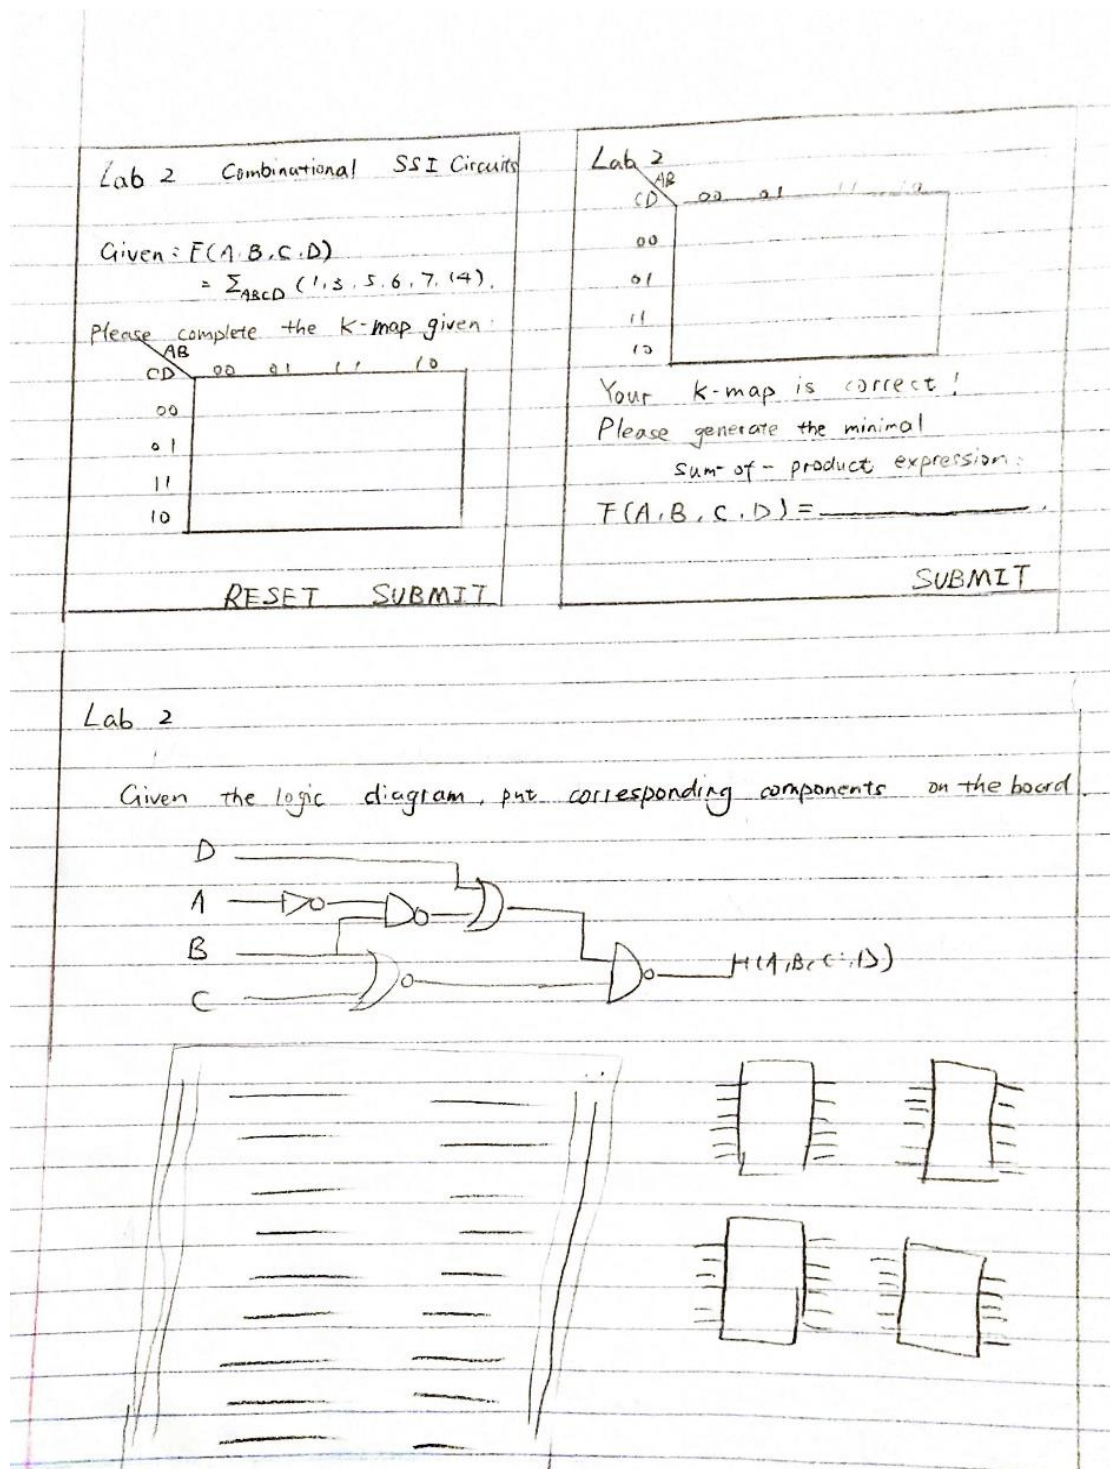 Lab 2 Combinational SSI Circuits
Given: F(A,B,C,D)
= ΣABCD (1,3,5,6,7,14).
Please complete the K-map given:
AB
CD 00 01 11 10
00
01
11
10
RESET SUBMIT
Lab 2
AB
CD 00 01 11 10
00
01
11
10
Your K-map is correct!
Please generate the minimal
sum-of-product expression:
F(A,B,C,D)=
SUBMIT
Lab 2
Given the logic diagram, put corresponding components on the board.
D
A
B
H(A,B,C,D)
C